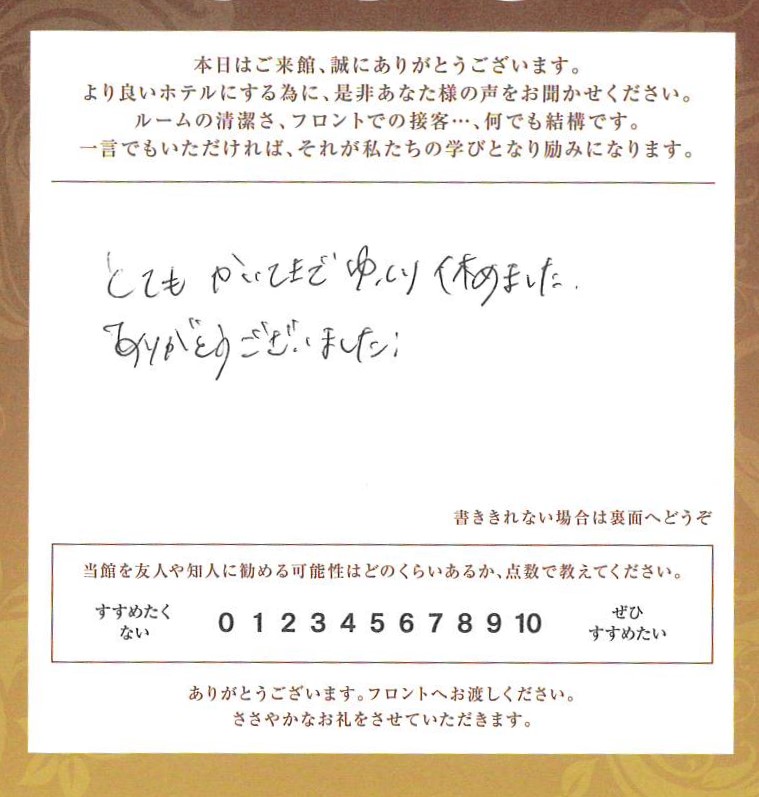 本日はご来館、誠にありがとうございます。
より良いホテルにする為に、是非あなた様の声をお聞かせください。
ルームの清潔さ、フロントでの接客…、何でも結構です。
一言でもいただければ、それが私たちの学びとなり励みになります。
とても かいてきで ゆっくり 休めました.
ありがとうございました;
書ききれない場合は裏面へどうぞ
当館を友人や知人に勧める可能性はどのくらいあるか、点数で教えてください。
すすめたく
ない
0 1 2 3 4 5 6 7 8 9 10
ぜひ
すすめたい
ありがとうございます。フロントへお渡しください。
ささやかなお礼をさせていただきます。